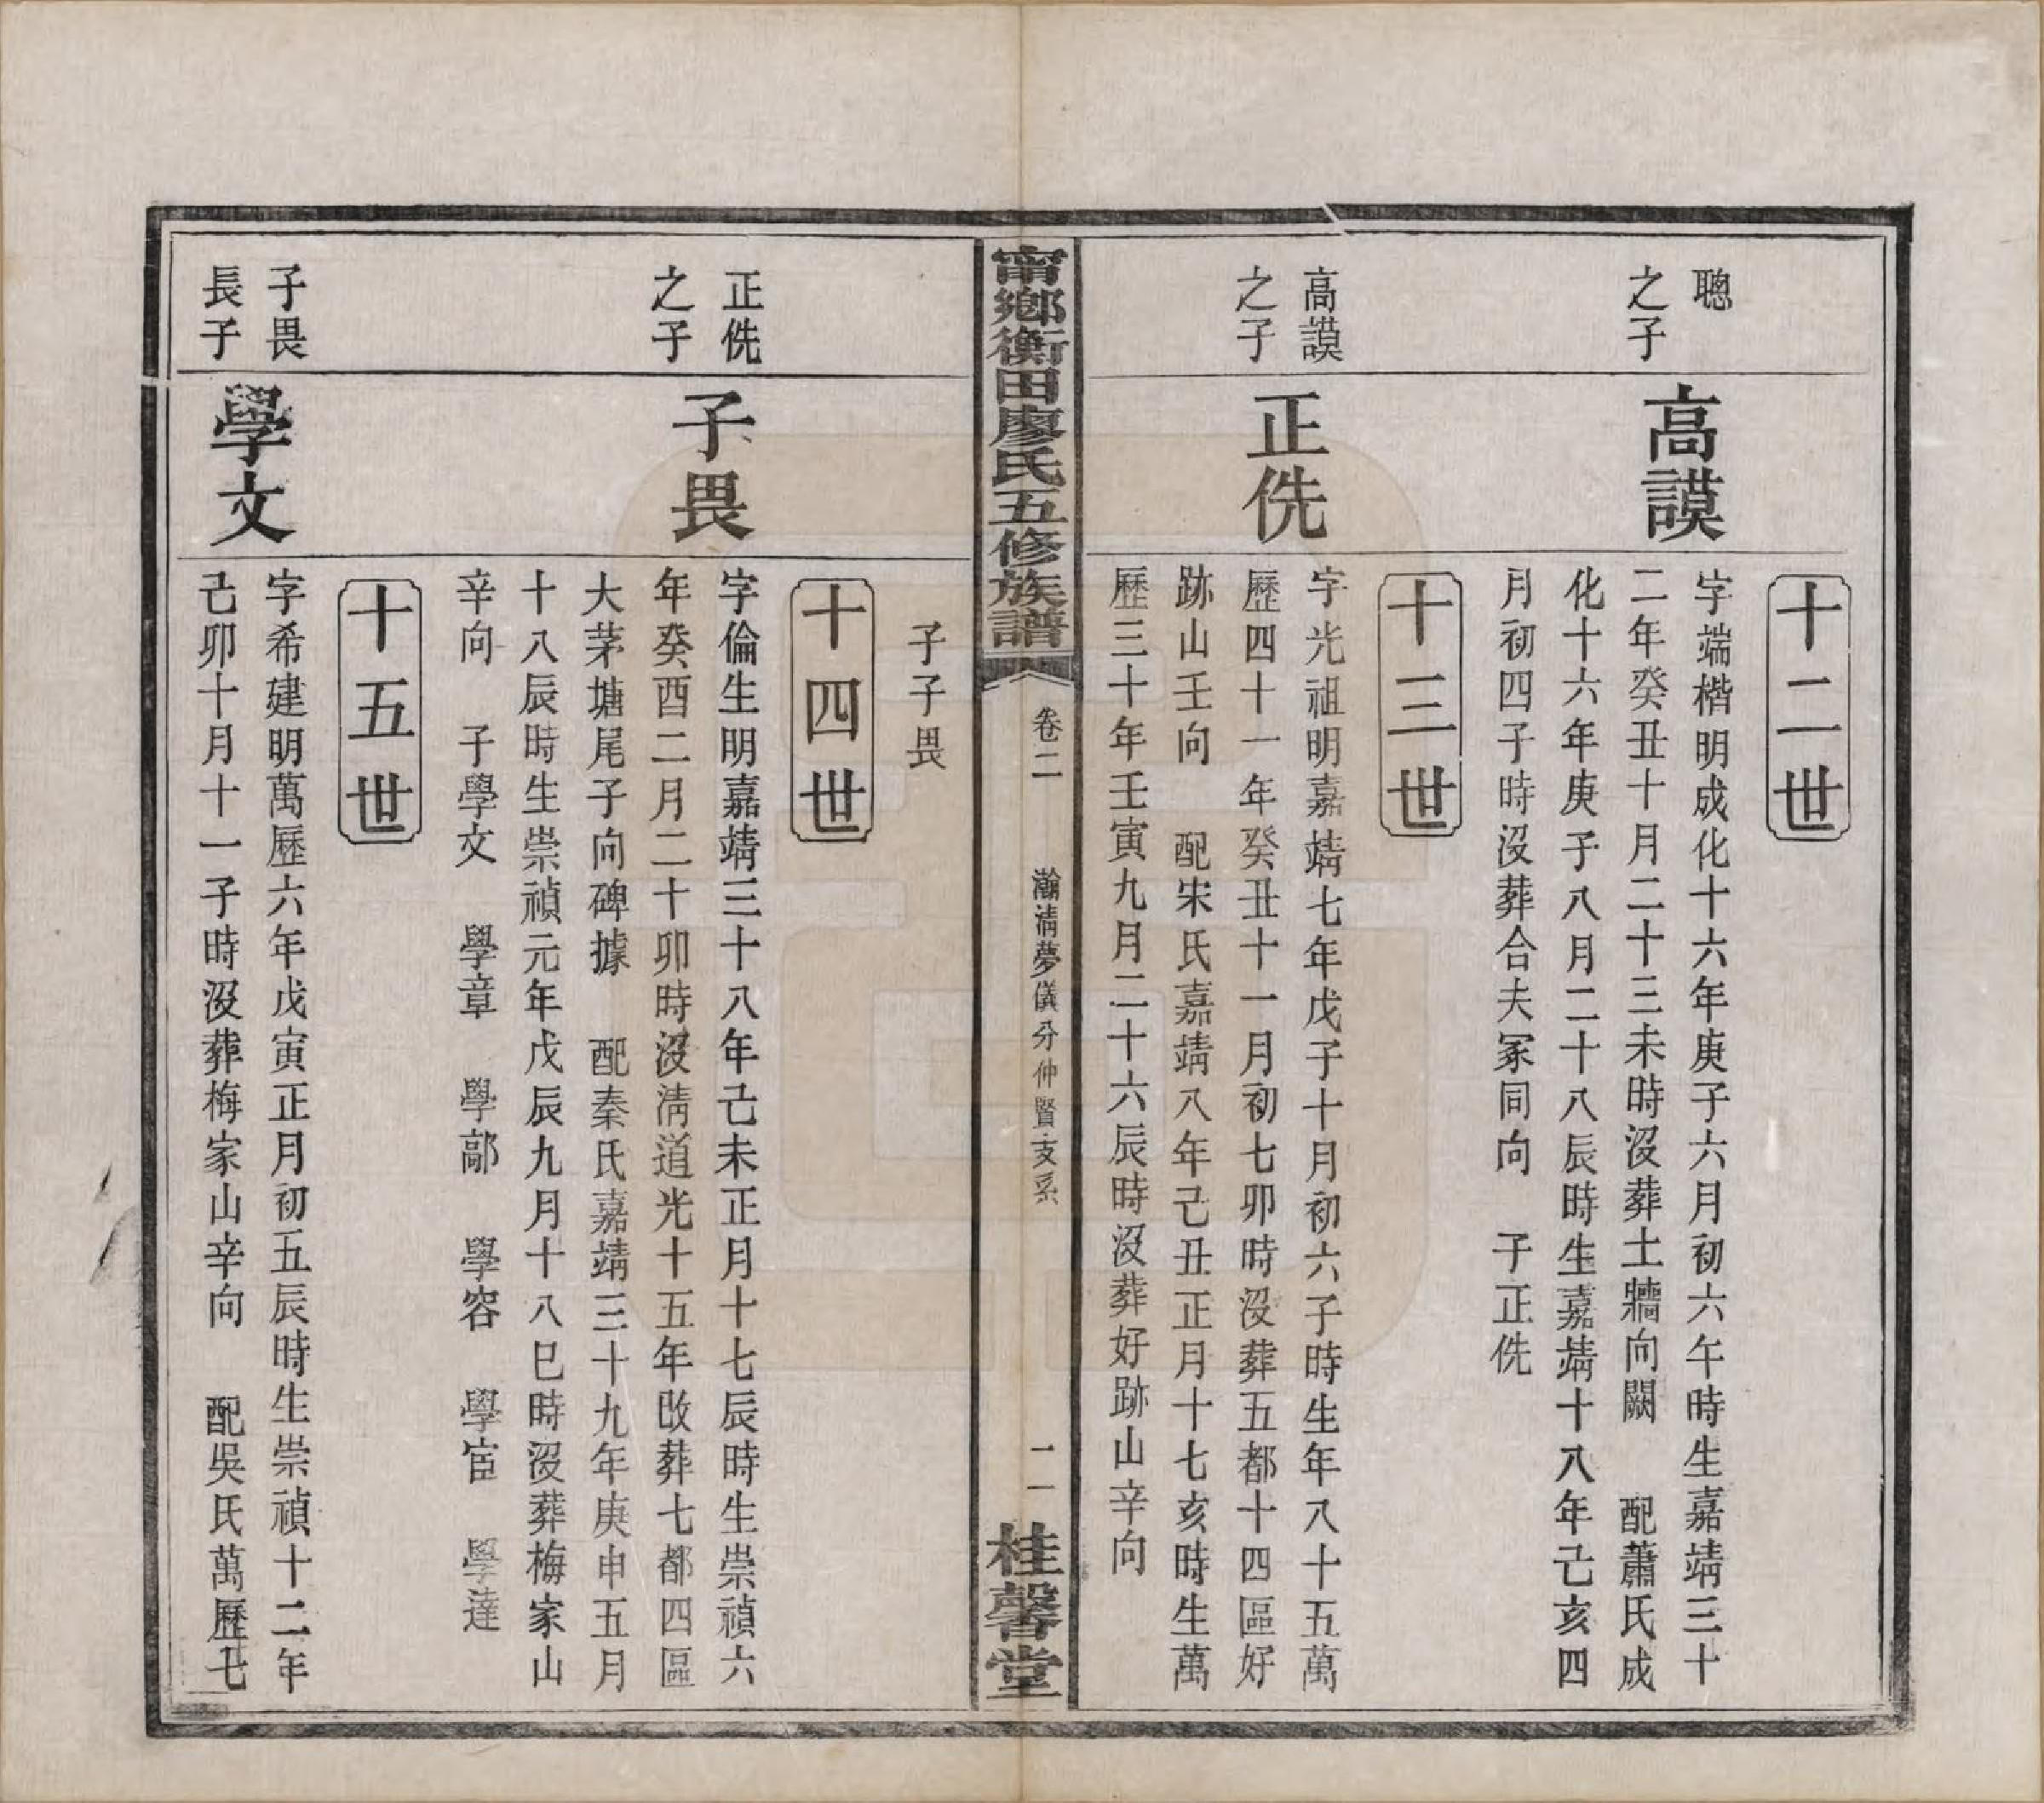 十二世
聰
之子
高謨
字端楷明成化十六年庚子六月初六午時生嘉靖三十
二年癸丑十月二十三未時沒葬土牆向闕　配蕭氏成
化十六年庚子八月二十八辰時生嘉靖十八年己亥四
月初四子時沒葬合夫冢同向　子正侁
十三世
高謨
之子
正侁
字光祖明嘉靖七年戊子十月初六子時生年八十五萬
歷四十一年癸丑十一月初七卯時沒葬五都十四區好
跡山壬向　配宋氏嘉靖八年己丑正月十七亥時生萬
歷三十年壬寅九月二十六辰時沒葬好跡山辛向
甯鄉衡田廖氏五修族譜
卷二
瀚清夢儀分仲賢支系
二一
桂馨堂
子子畏
十四世
正侁
之子
子畏
字倫生明嘉靖三十八年己未正月十七辰時生崇禎六
年癸酉二月二十卯時沒清道光十五年改葬七都四區
大茅塘尾子向碑據　配秦氏嘉靖三十九年庚申五月
十八辰時生崇禎元年戊辰九月十八巳時沒葬梅家山
辛向　子學文　學章　學鄗　學容　學宦　學達
十五世
子畏
長子
學文
字希建明萬歷六年戊寅正月初五辰時生崇禎十二年
己卯十月十一子時沒葬梅家山辛向　配吳氏萬歷七